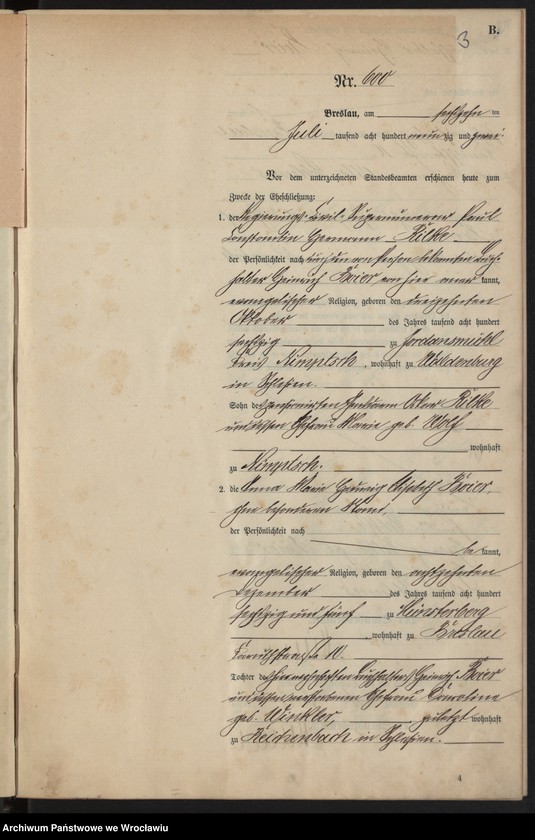 B.
3
Nr. 600
Breslau, am sechszehn ten
Juli tausend acht hundert neunzig und zwei
Vor dem unterzeichneten Standesbeamten erschienen heute zum
Zwecke der Eheschließung:
1. der Regierungs-Civil-Supernumerar Paul
Constantin Hermann Rilke
der Persönlichkeit nach durch den von Person bekannten Buch-
halter Heinrich Böier, von hier aner kannt,
evangelischer Religion, geboren den dreizehnten
Oktober des Jahres tausend acht hundert
sechszig zu Jordansmühl
Kreis Nimptsch, wohnhaft zu Waldenburg
in Schlesien.
Sohn des pensionirten Gendarm Rilke
und dessen Ehefrau Marie geb. Wolf
wohnhaft
zu Nimptsch.
2. die Anna Marie Hedwig Elisabeth Böier,
ohne besonderen Stand,
der Persönlichkeit nach
be kannt,
evangelischer Religion, geboren den achtzehnten
Dezember des Jahres tausend acht hundert
sechszig und fünf zu Münsterberg
, wohnhaft zu Breslau
10.
Tochter des Buchhalters Heinrich Böier
und dessen verstorbenen Ehefrau Caroline
geb. Winkler, zuletzt wohnhaft
zu Reichenbach in Schlesien.
4
Archiwum Państwowe we Wrocławiu